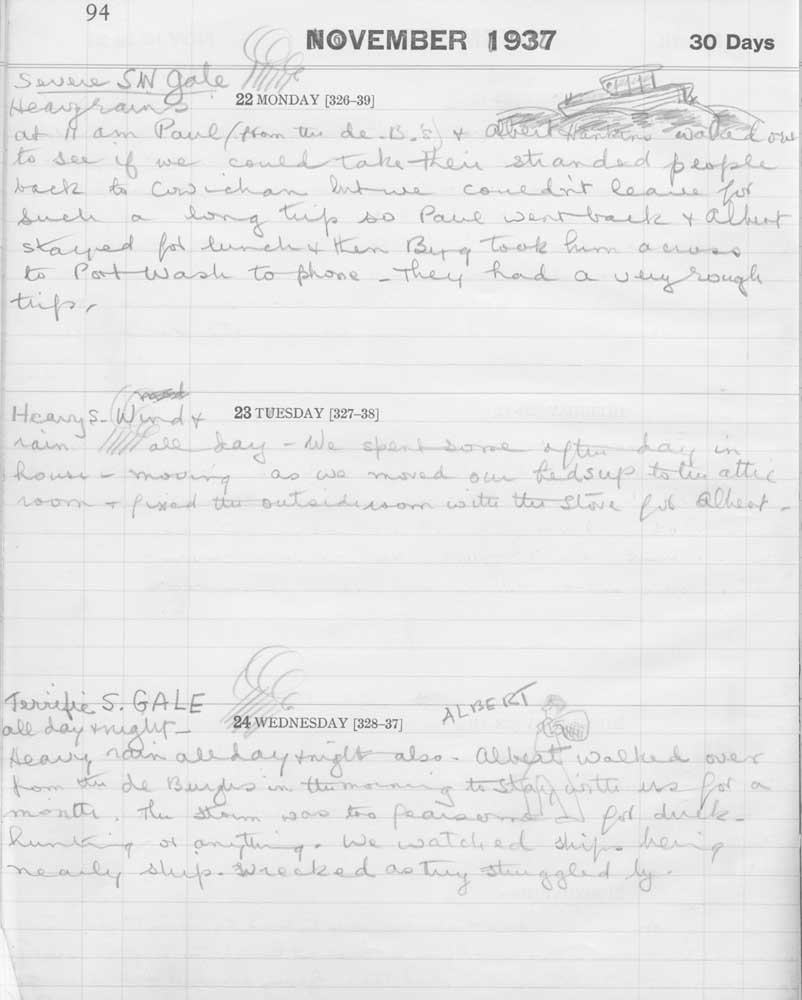 94
NOVEMBER 1937 30 Days
Severe SW Gale
Heavy rains 22 MONDAY [326–39]
at 11 am Paul (from the de B.'s) & Albert Hankins walked over
to see if we could take their stranded people
back to Cowichan but we couldn't leave for
such a long trip so Paul went back & Albert
stayed for lunch & then Berg took him across
to Port Wash to phone – They had a very rough
trip.
Heavy S. Wind & 23 TUESDAY [327–38]
rain all day – We spent some of the day in
house – moving as we moved our beds up to the attic
room & fixed the outside room with the stove for Albert –
Terrific S. GALE
all day & night – 24 WEDNESDAY [328–37] ALBERT
Heavy rain all day & night also. Albert walked over
from the de Burghs in the morning to stay with us for a
month. The storm was too fearsome for duck-
hunting or anything. We watched ships being
nearly ship-wrecked as they struggled by.